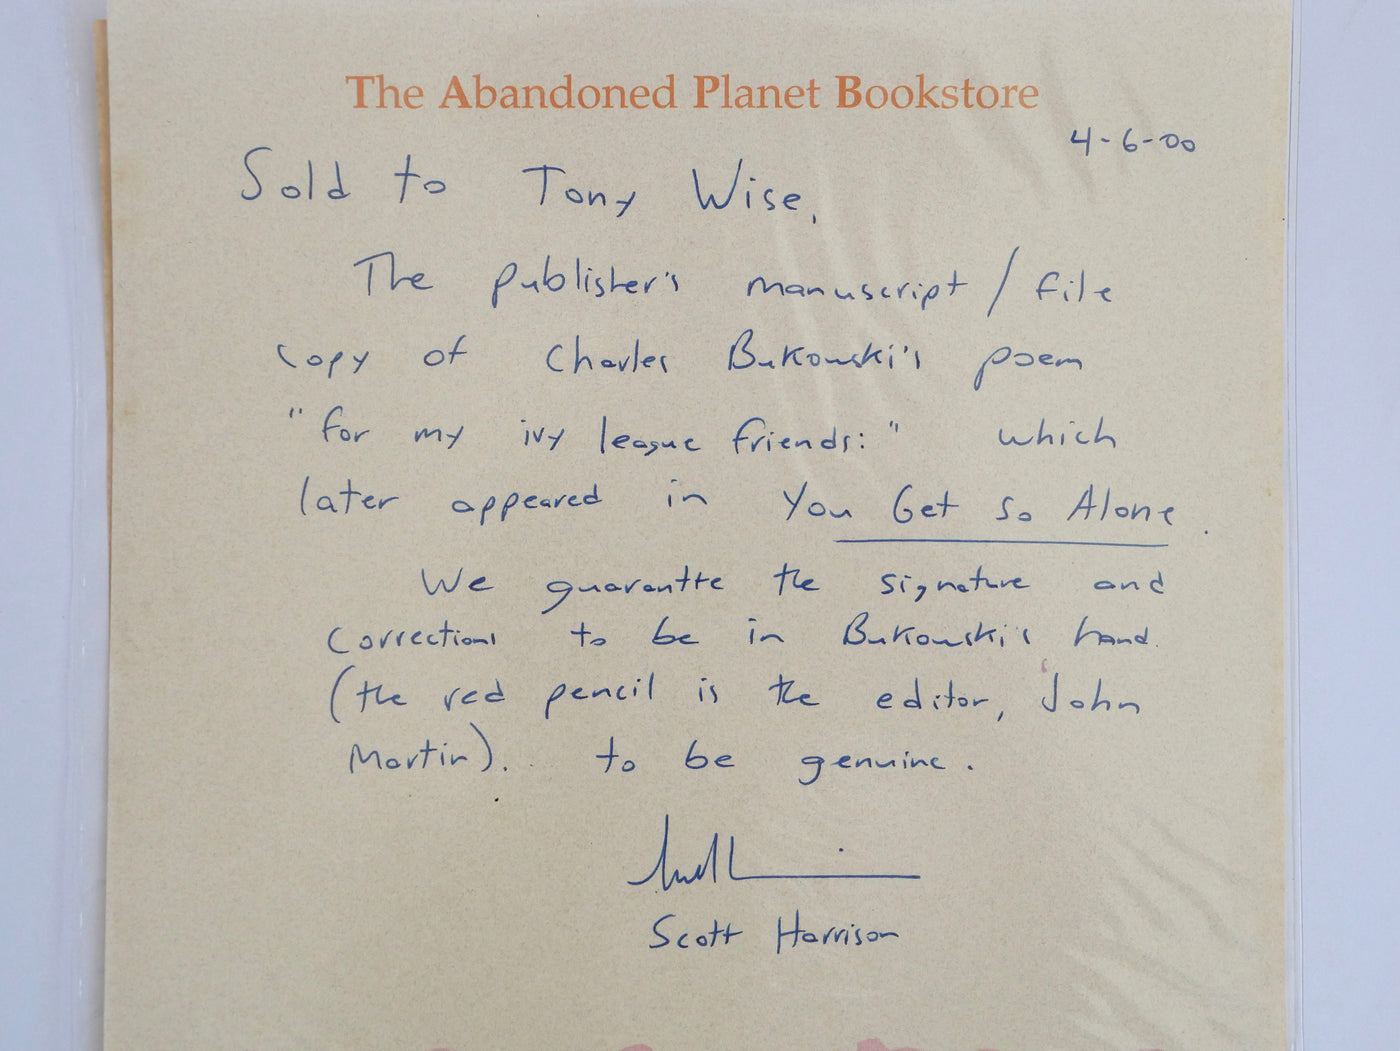 The Abandoned Planet Bookstore
4-6-00
Sold to Tony Wise,
The publisher's manuscript / file
copy of Charles Bukowski's poem
"for my ivy league friends:" which
later appeared in You Get so Alone.
We guarantte the signature and
corrections to be in Bukowski's hand.
(the red pencil is the editor, John
Martin). to be genuine.
Scott Harrison